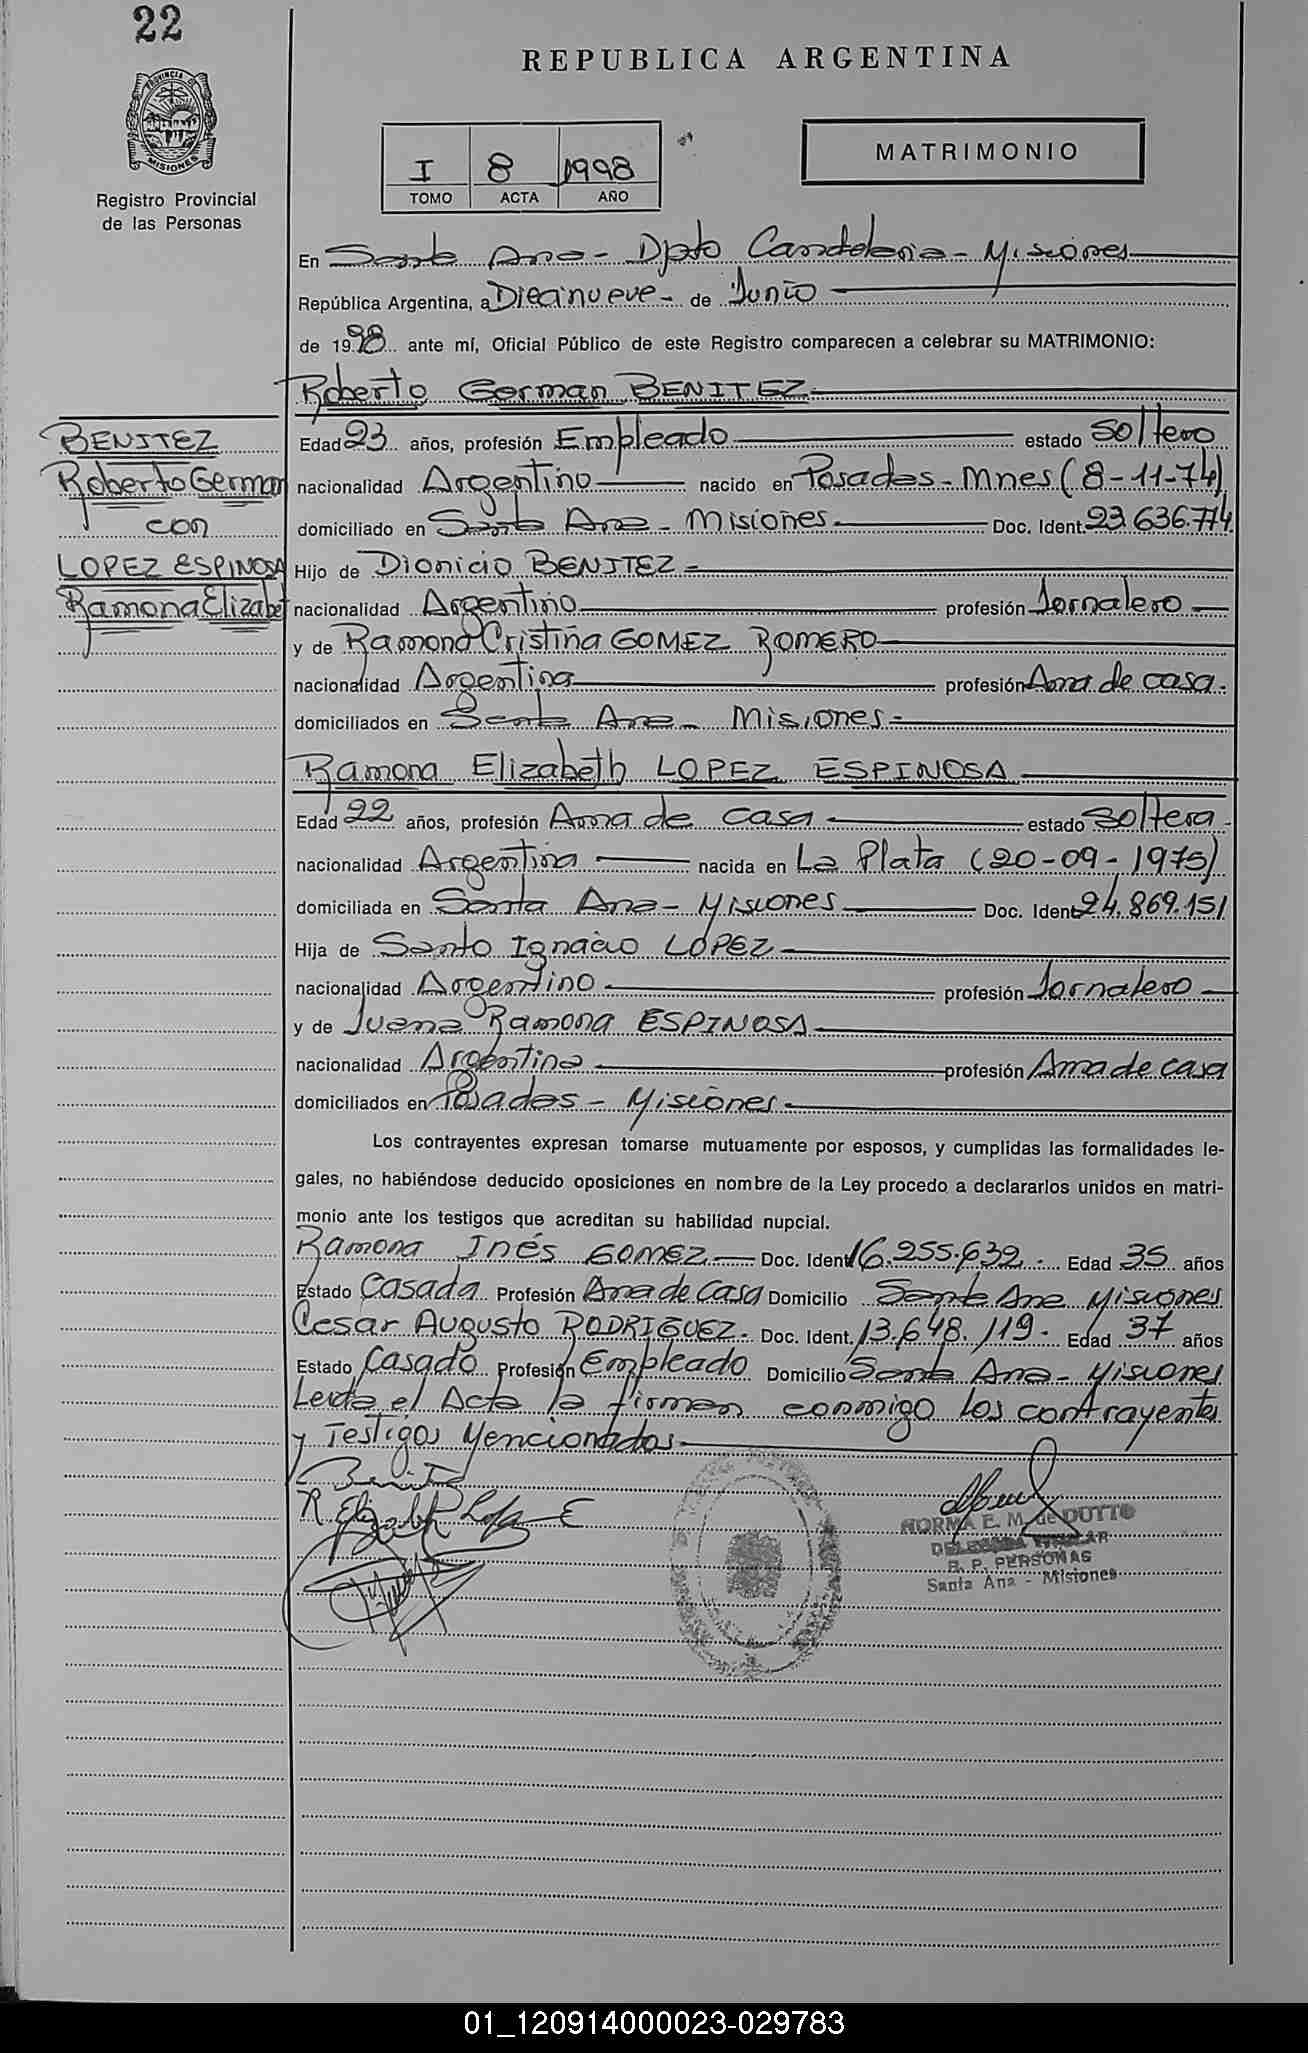 22
REPUBLICA ARGENTINA
PROVINCIA DE
MISIONES
Registro Provincial
de las Personas
I 8 1998
TOMO ACTA AÑO
MATRIMONIO
En Santa Ana - Dpto Candelaria - Misiones
República Argentina, a Diecinueve - de Junio
de 1998 ante mí, Oficial Público de este Registro comparecen a celebrar su MATRIMONIO:
Roberto German BENITEZ
BENITEZ
Roberto German
con
LOPEZ ESPINOSA
Ramona Elizabet
Edad 23 años, profesión Empleado estado Soltero
nacionalidad Argentino nacido en Posadas - Mnes (8-11-74)
domiciliado en Santa Ana - Misiones Doc. Ident. 23.636.774
Hijo de Dionicio BENITEZ
nacionalidad Argentino profesión Jornalero
y de Ramona Cristina GOMEZ ROMERO
nacionalidad Argentina profesión Ama de casa.
domiciliados en Santa Ana - Misiones
Ramona Elizabeth LOPEZ ESPINOSA
Edad 22 años, profesión Ama de casa estado Soltera
nacionalidad Argentina nacida en La Plata (20-09-1975)
domiciliada en Santa Ana - Misiones Doc. Ident. 24.869.151
Hija de Santo Ignacio LOPEZ
nacionalidad Argentino profesión Jornalero
y de Juana Ramona ESPINOSA
nacionalidad Argentina profesión Ama de casa
domiciliados en Posadas - Misiones
Los contrayentes expresan tomarse mutuamente por esposos, y cumplidas las formalidades le-
gales, no habiéndose deducido oposiciones en nombre de la Ley procedo a declararlos unidos en matri-
monio ante los testigos que acreditan su habilidad nupcial.
Ramona Inés GOMEZ Doc. Ident. 16.255.632 Edad 35 años
Estado Casada Profesión Ama de Casa Domicilio Santa Ana Misiones
Cesar Augusto RODRIGUEZ Doc. Ident. 13.648.119 Edad 37 años
Estado Casado Profesión Empleado Domicilio Santa Ana - Misiones
Leida el Acta la firman conmigo los contrayentes
y Testigos Mencionados
Benitez
R Elizabeth Lopez E
NORMA E. M. de DUTTO
DELEGADA TITULAR
R. P. PERSONAS
Santa Ana - Misiones
01_120914000023-029783